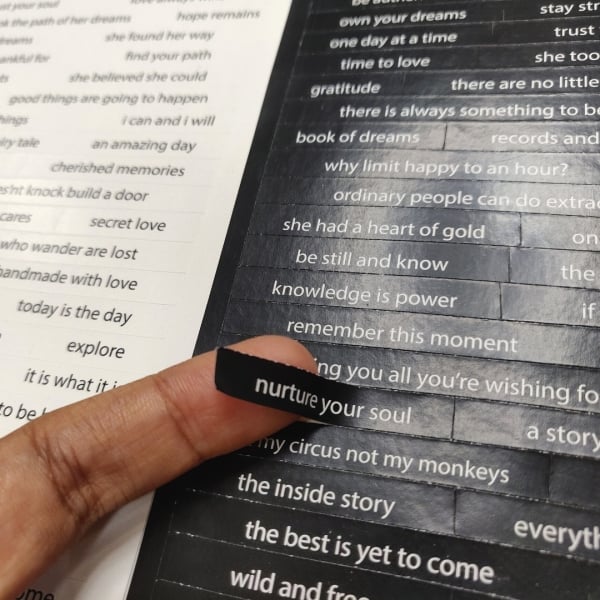 love always
hope remains
the path of her dreams
she found her way
dreams
find your path
she believed she could
good things are going to happen
i can and i will
tale
an amazing day
cherished memories
knock build a door
cares
secret love
who wander are lost
handmade with love
today is the day
explore
it is what it
to be
own your dreams
stay
one day at a time
trust
time to love
she too
gratitude
there are no little
there is always something to be
book of dreams
records and
why limit happy to an hour?
ordinary people can do extrao
she had a heart of gold
on
be still and know
the
knowledge is power
if
remember this moment
ing you all you're wishing fo
nurture your soul
a story
my circus not my monkeys
the inside story
everyth
the best is yet to come
wild and free